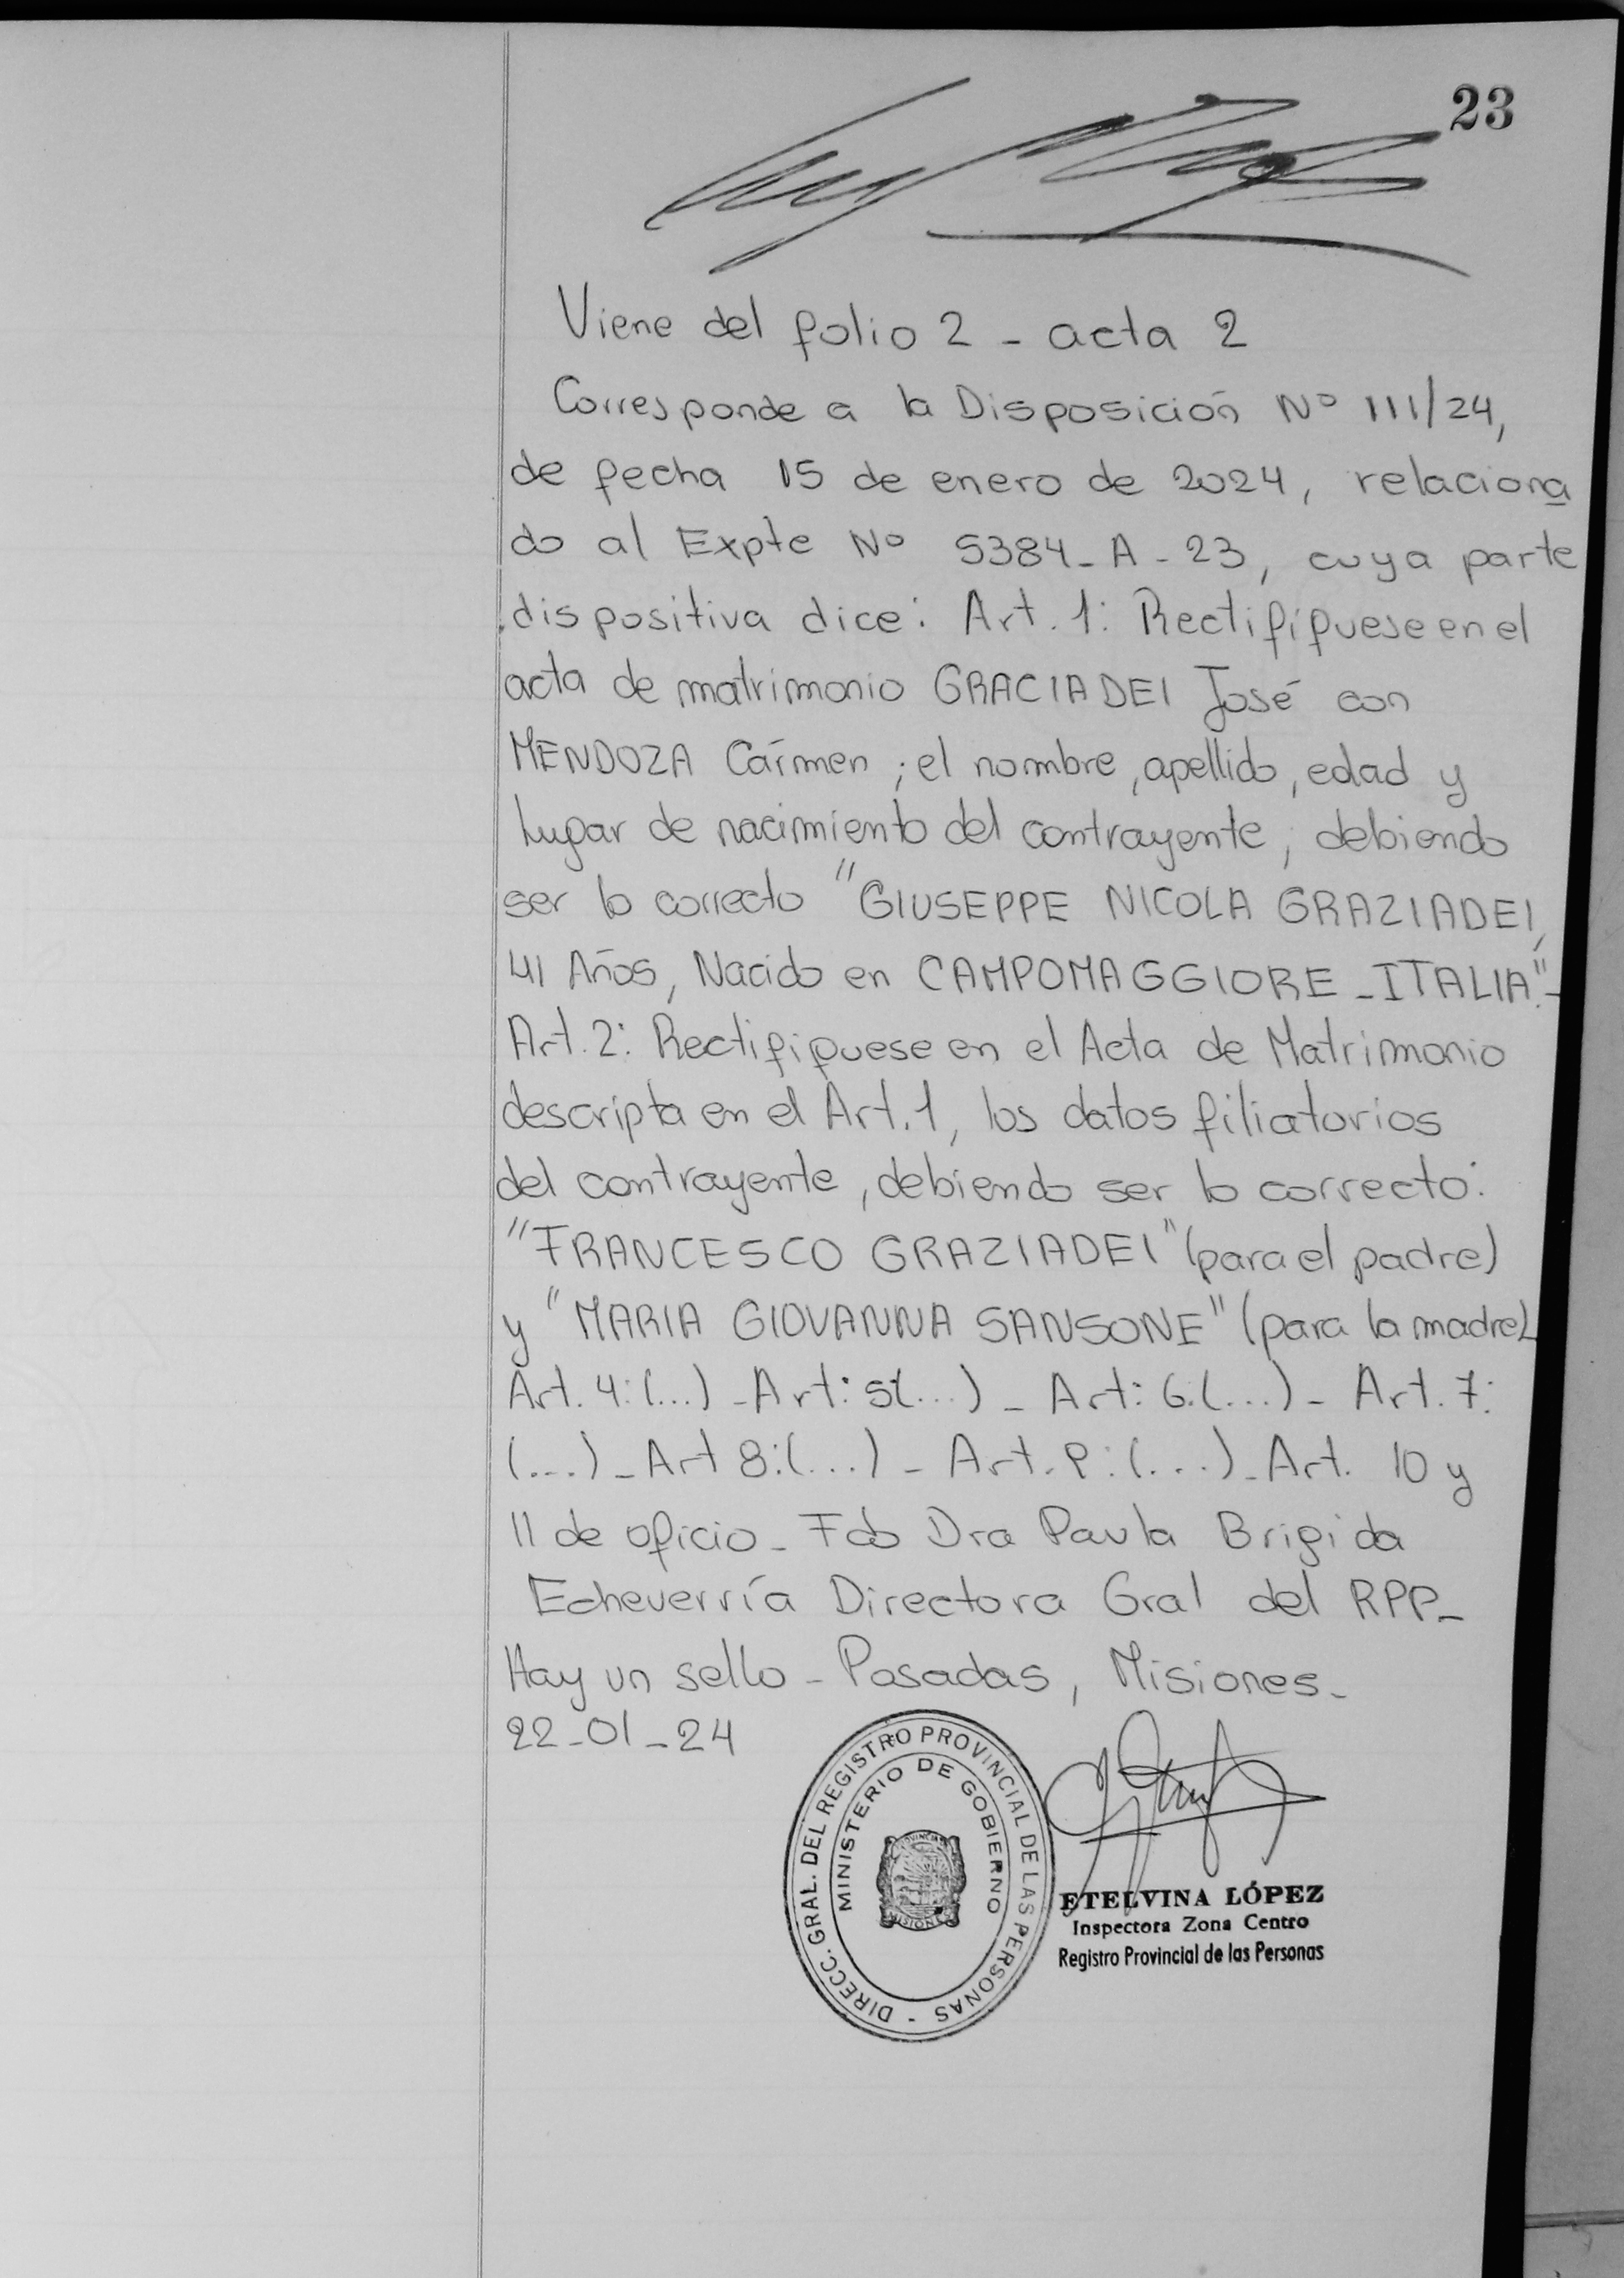 23
Viene del folio 2 - acta 2
Corresponde a la Disposición Nº 111/24,
de fecha 15 de enero de 2024, relaciona
do al Expte Nº 5384-A-23, cuya parte
dispositiva dice: Art. 1: Rectifíquese en el
acta de matrimonio GRACIADEI José con
MENDOZA Cármen; el nombre, apellido, edad y
lugar de nacimiento del contrayente; debiendo
ser lo correcto "GIUSEPPE NICOLA GRAZIADEI,
41 Años, Nacido en CAMPOMAGGIORE-ITALIA".-
Art. 2: Rectifiquese en el Acta de Matrimonio
descripta en el Art. 1, los datos filiatorios
del contrayente, debiendo ser lo correcto:
"FRANCESCO GRAZIADEI" (para el padre)
y "MARIA GIOVANNA SANSONE" (para la madre).
Art. 4:(...) - Art: 5(...) - Art: 6:(...) - Art. 7:
(...) - Art 8:(...) - Art. 9:(...) - Art. 10 y
11 de oficio - Fdo Dra Paula Brigida
Echeverría Directora Gral del RPP-
Hay un sello - Posadas, Misiones-
22-01-24
DIRECC. GRAL. DEL REGISTRO PROVINCIAL DE LAS PERSONAS -
MINISTERIO DE GOBIERNO
PROVINCIA
MISIONES
ETELVINA LÓPEZ
Inspectora Zona Centro
Registro Provincial de las Personas